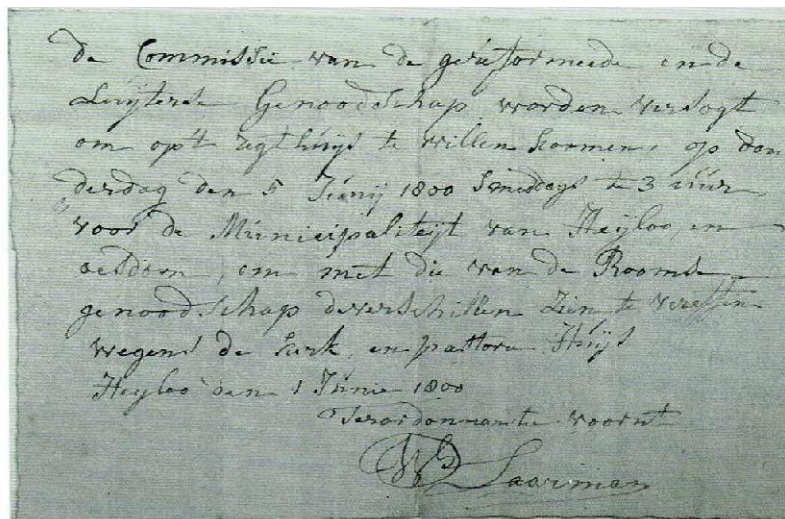 de Commissie van de gereformeede en de
Luyterse Genoodschap worden versogt
om op't regthuys te willen komen, op don
derdag den 5 Junij 1800 smiddags te 3 uur
voor de Municipaliteyt van Heyloo, en
oesdom, om met die van de Roomse
genoodschap deverschillen zien te vereffen
wegens de kerk, en pastorie Huys
Heyloo den 1 Junie 1800
Terordonnantie voornt
Laarman